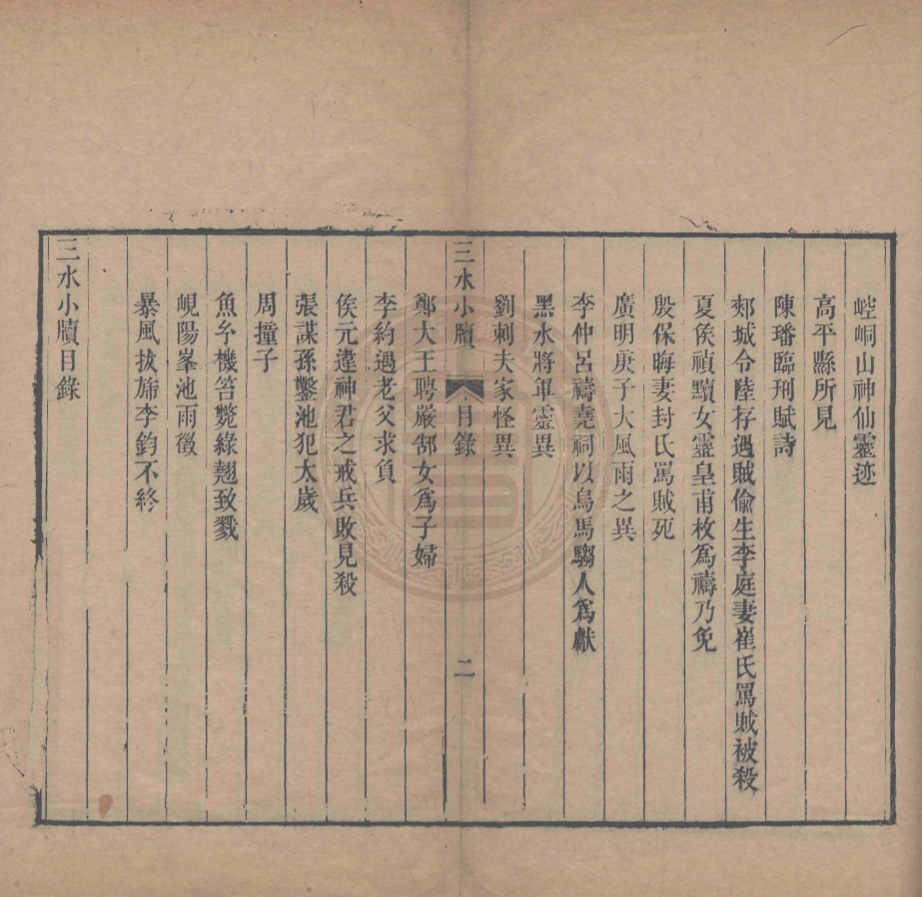 崆峒山神仙靈迹
高平縣所見
陳璠臨刑賦詩
郟城令陸存遇賊偷生李庭妻崔氏罵賊被殺
夏侯禎黷女靈皇甫枚爲禱乃免
殷保晦妻封氏罵賊死
廣明庚子大風雨之異
李仲呂禱堯祠以烏馬騶人爲獻
黑水將軍靈異
劉刺夫家怪異
三水小牘 目錄 二
鄭大王聘嚴郜女爲子婦
李約遇老父求負
侯元違神君之戒兵敗見殺
張謀孫鑿池犯太歲
周撞子
魚玄機笞斃綠翹致戮
峴陽峯池雨徵
暴風拔旆李鈞不終
三水小牘目錄